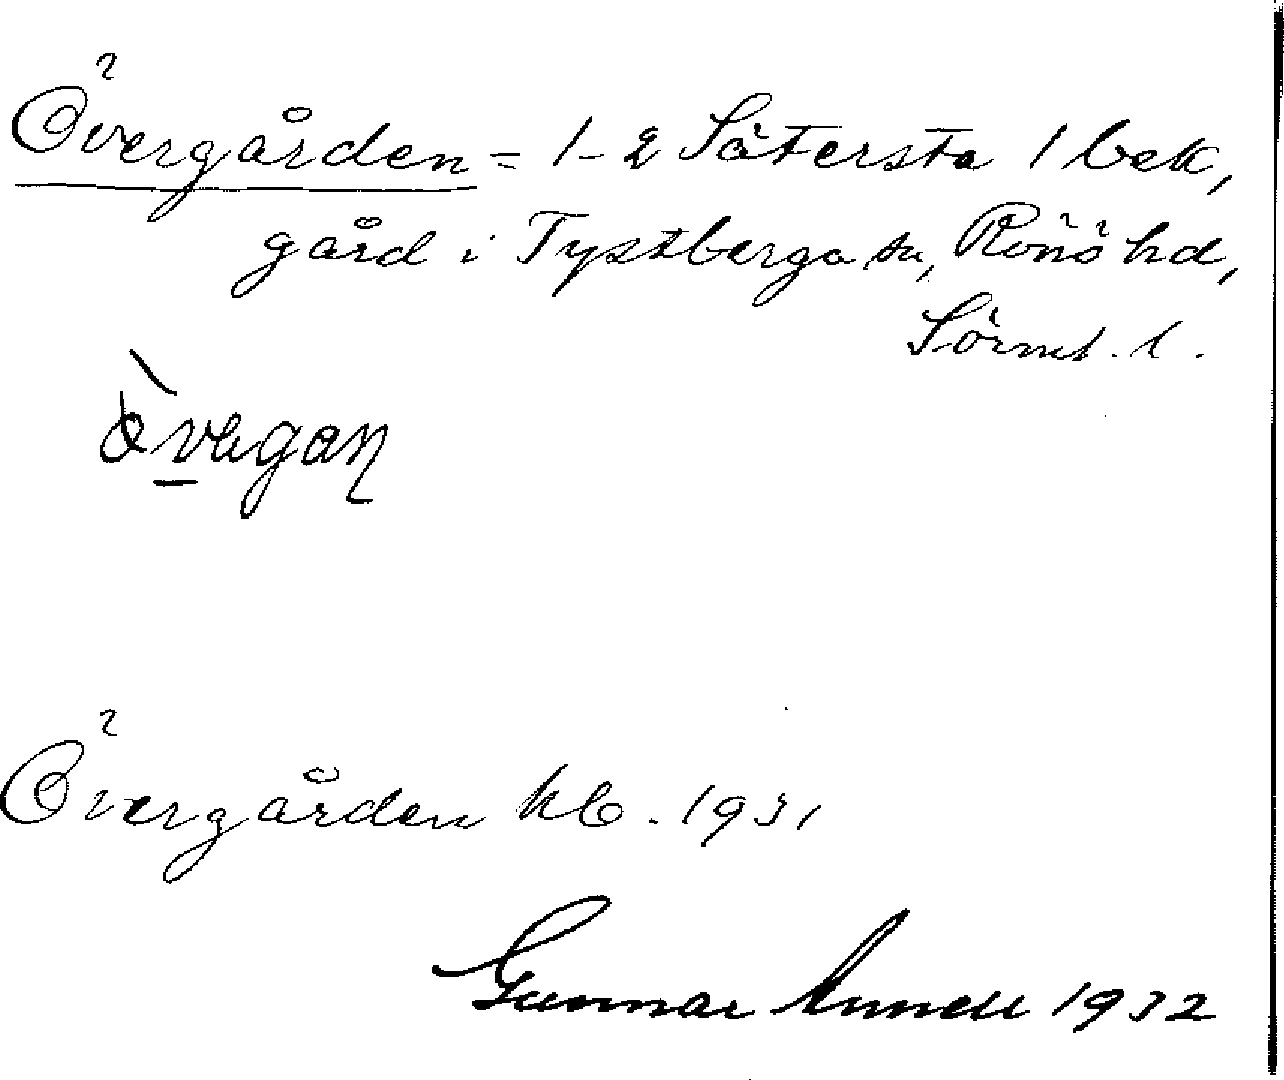 Övergården = 1-2 Sätersta 1 bek,
gård i Tystberga sn, Rönö hd,
Sörml. l.
Övergården kb. 1931
Gunnar Annell 1932